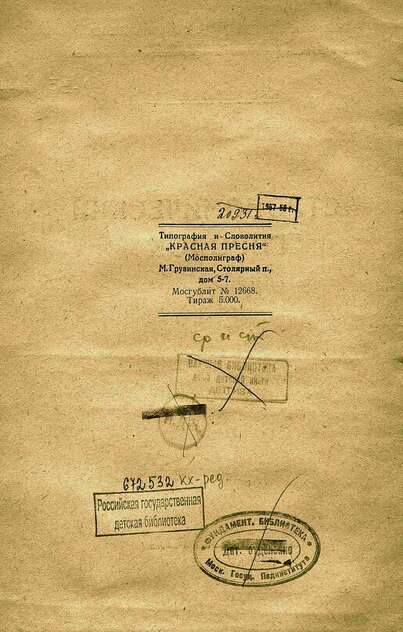 20931
1967-68 г.
Типография и Словолития
„КРАСНАЯ ПРЕСНЯ“
(Мосполиграф)
М. Грузинская, Столярный п.,
дом 5-7.
Мосгублит № 12668.
Тираж 5.000.
ср и ст.
672532 кх-ред.
Российская государственная
детская библиотека
ФУНДАМЕНТ. БИБЛИОТЕКА
Дет. отделение
Моск. Госуд. Пединститута